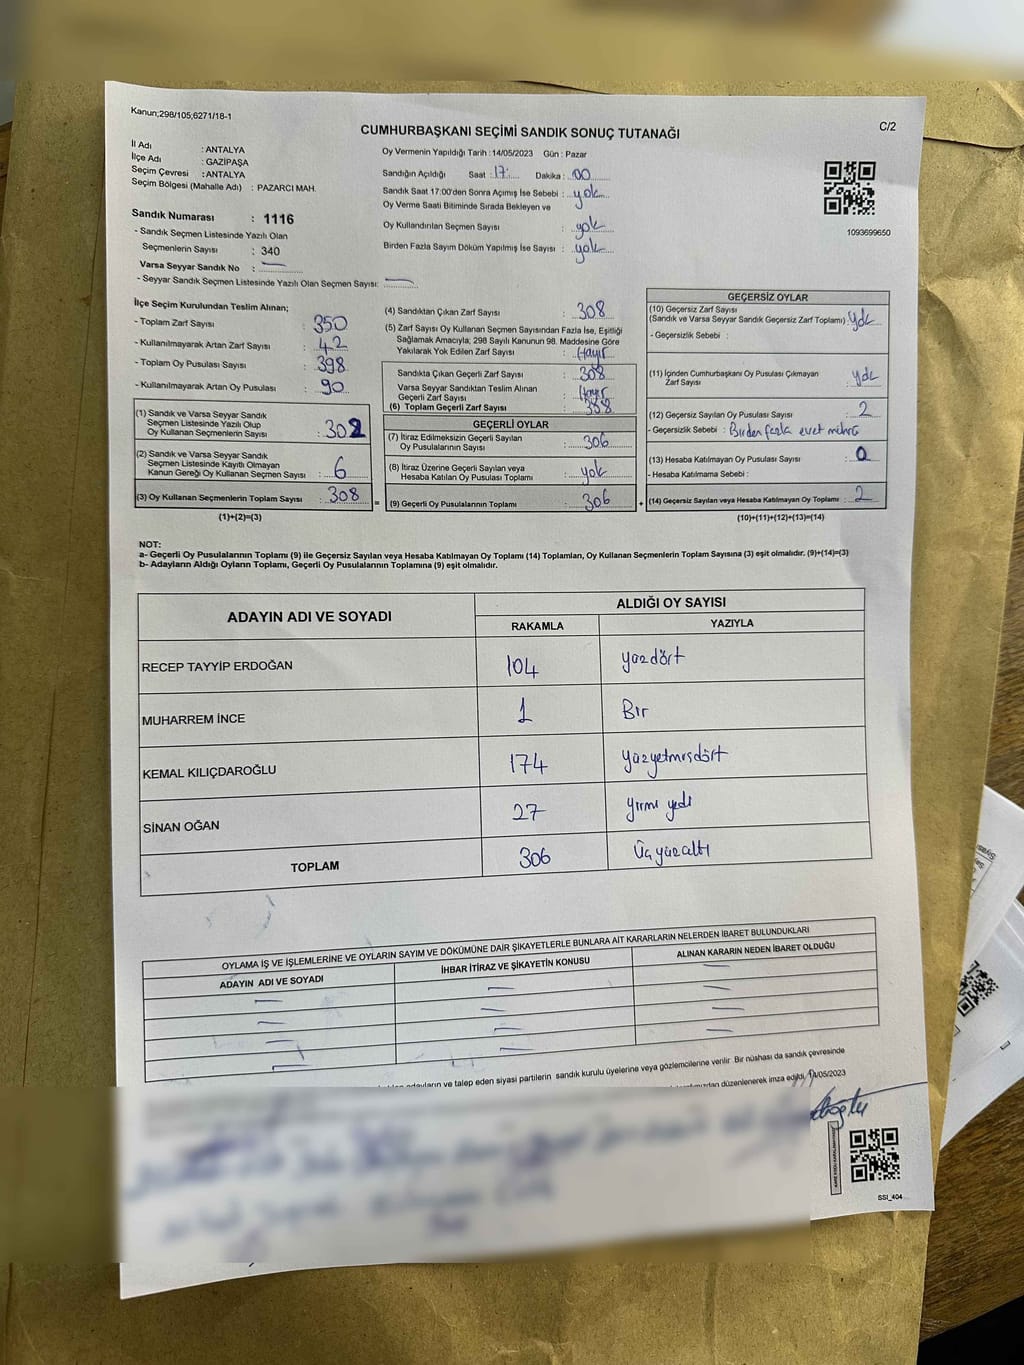 Kanun;298/105;6271/18-1
C/2
CUMHURBAŞKANI SEÇİMİ SANDIK SONUÇ TUTANAĞI
İl Adı : ANTALYA
İlçe Adı : GAZİPAŞA
Seçim Çevresi : ANTALYA
Seçim Bölgesi (Mahalle Adı) : PAZARCI MAH.
Sandık Numarası : 1116
- Sandık Seçmen Listesinde Yazılı Olan
Seçmenlerin Sayısı : 340
Varsa Seyyar Sandık No :
- Seyyar Sandık Seçmen Listesinde Yazılı Olan Seçmen Sayısı:
Oy Vermenin Yapıldığı Tarih : 14/05/2023 Gün : Pazar
Sandığın Açıldığı Saat : 17: Dakika : 00
Sandık Saat 17:00'den Sonra Açımış İse Sebebi : yok
Oy Verme Saati Bitiminde Sırada Bekleyen ve
Oy Kullandırılan Seçmen Sayısı : yok
Birden Fazla Sayım Döküm Yapılmış İse Sayısı : yok
1093699650
İlçe Seçim Kurulundan Teslim Alınan;
- Toplam Zarf Sayısı : 350
- Kullanılmayarak Artan Zarf Sayısı : 42
- Toplam Oy Pusulası Sayısı : 398
- Kullanılmayarak Artan Oy Pusulası : 90
(1) Sandık ve Varsa Seyyar Sandık
Seçmen Listesinde Yazılı Olup
Oy Kullanan Seçmenlerin Sayısı : 302
(2) Sandık ve Varsa Seyyar Sandık
Seçmen Listesinde Kayıtlı Olmayan
Kanun Gereği Oy Kullanan Seçmen Sayısı : 6
(3) Oy Kullanan Seçmenlerin Toplam Sayısı : 308
(1)+(2)=(3)
(4) Sandıktan Çıkan Zarf Sayısı : 308
(5) Zarf Sayısı Oy Kullanan Seçmen Sayısından Fazla İse, Eşitliği
Sağlamak Amacıyla; 298 Sayılı Kanunun 98. Maddesine Göre
Yakılarak Yok Edilen Zarf Sayısı : Hayır
Sandıkta Çıkan Geçerli Zarf Sayısı : 308
Varsa Seyyar Sandıktan Teslim Alınan
Geçerli Zarf Sayısı : Hayır
(6) Toplam Geçerli Zarf Sayısı : 308
GEÇERLİ OYLAR
(7) İtiraz Edilmeksizin Geçerli Sayılan
Oy Pusulalarının Sayısı : 306
(8) İtiraz Üzerine Geçerli Sayılan veya
Hesaba Katılan Oy Pusulası Toplamı : yok
= (9) Geçerli Oy Pusulalarının Toplamı : 306 +
GEÇERSİZ OYLAR
(10) Geçersiz Zarf Sayısı
(Sandık ve Varsa Seyyar Sandık Geçersiz Zarf Toplamı) : yok
- Geçersizlik Sebebi :
(11) İçinden Cumhurbaşkanı Oy Pusulası Çıkmayan
Zarf Sayısı : yok
(12) Geçersiz Sayılan Oy Pusulası Sayısı : 2
- Geçersizlik Sebebi : Birden fazla evet mührü
(13) Hesaba Katılmayan Oy Pusulası Sayısı : 0
- Hesaba Katılmama Sebebi :
(14) Geçersiz Sayılan veya Hesaba Katılmayan Oy Toplamı : 2
(10)+(11)+(12)+(13)=(14)
NOT:
a- Geçerli Oy Pusulalarının Toplamı (9) ile Geçersiz Sayılan veya Hesaba Katılmayan Oy Toplamı (14) Toplamları, Oy Kullanan Seçmenlerin Toplam Sayısına (3) eşit olmalıdır. (9)+(14)=(3)
b- Adayların Aldığı Oyların Toplamı, Geçerli Oy Pusulalarının Toplamına (9) eşit olmalıdır.
ADAYIN ADI VE SOYADI
ALDIĞI OY SAYISI
RAKAMLA YAZIYLA
RECEP TAYYİP ERDOĞAN 104 yüzdört
MUHARREM İNCE 1 Bir
KEMAL KILIÇDAROĞLU 174 yüzyetmişdört
SİNAN OĞAN 27 yirmi yedi
TOPLAM 306 Üçyüzaltı
OYLAMA İŞ VE İŞLEMLERİNE VE OYLARIN SAYIM VE DÖKÜMÜNE DAİR ŞİKAYETLERLE BUNLARA AİT KARARLARIN NELERDEN İBARET BULUNDUKLARI
ADAYIN ADI VE SOYADI İHBAR İTİRAZ VE ŞİKAYETİN KONUSU ALINAN KARARIN NEDEN İBARET OLDUĞU
adayların ve talep eden siyasi partilerin sandık kurulu üyelerine veya gözlemcilerine verilir. Bir nüshası da sandık çevresinde
düzenlenerek imza edildi. 14/05/2023
SSİ_404